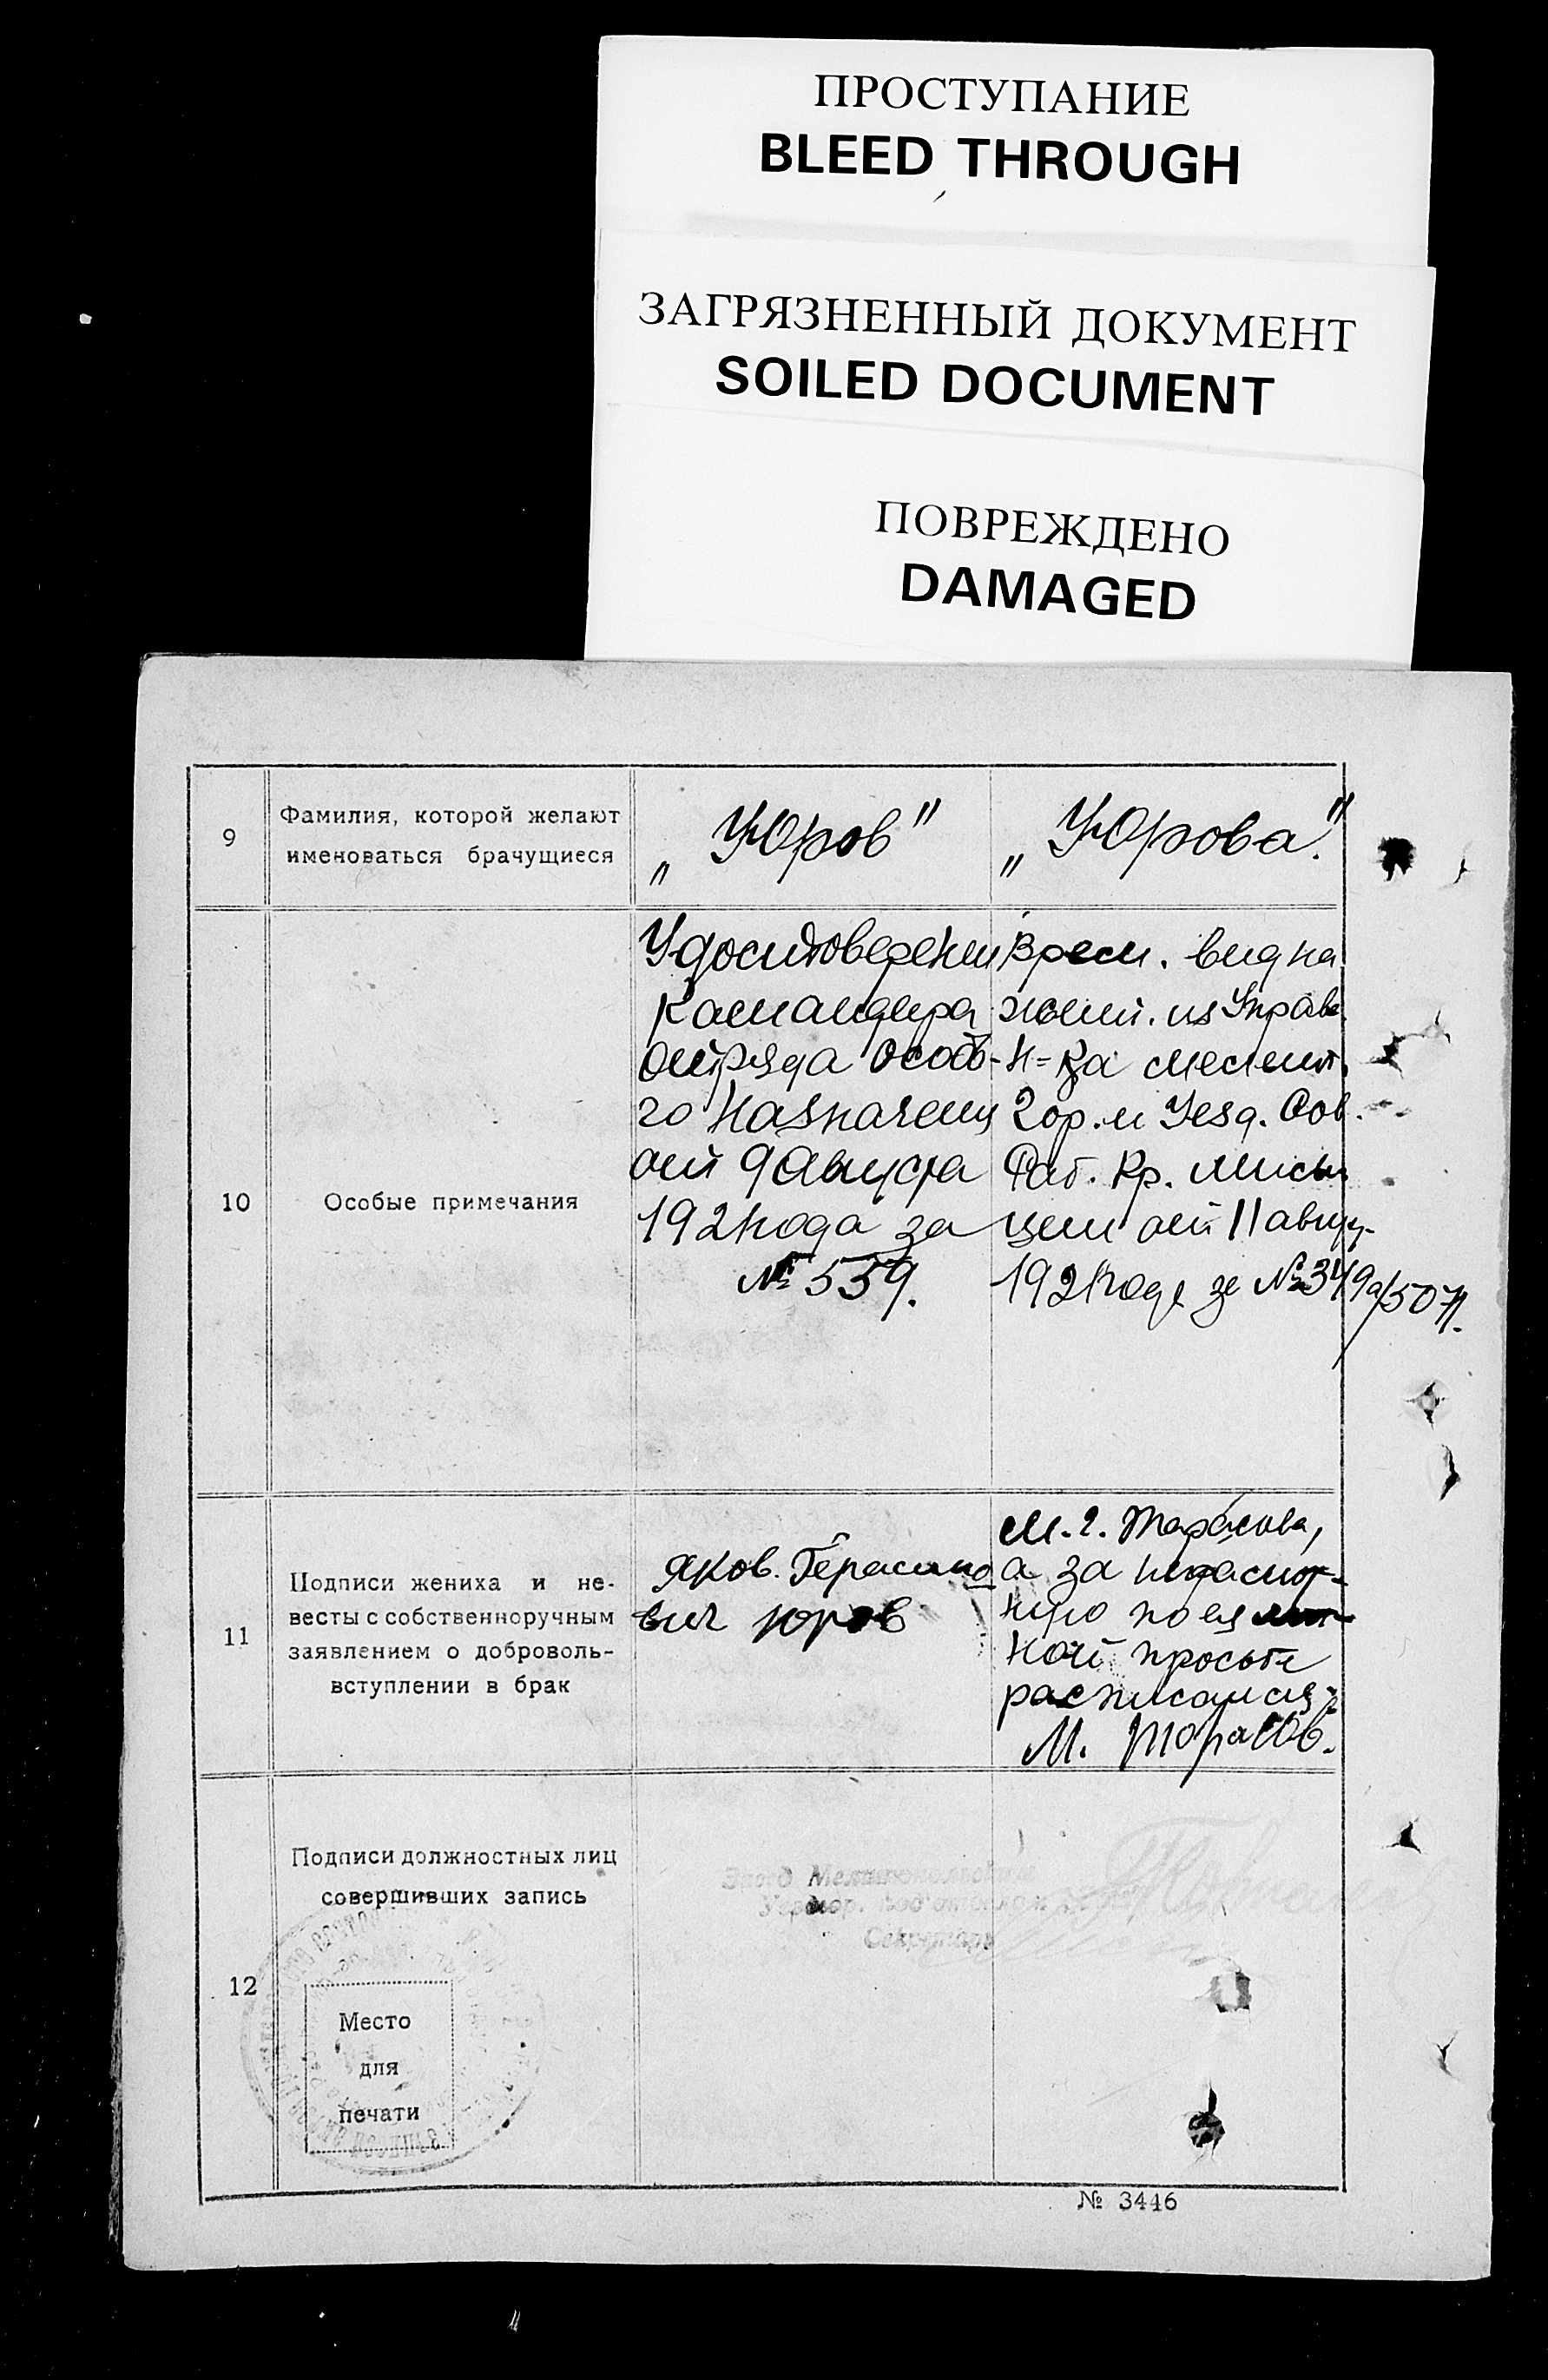 ПРОСТУПАНИЕ
BLEED THROUGH
ЗАГРЯЗНЕННЫЙ ДОКУМЕНТ
SOILED DOCUMENT
ПОВРЕЖДЕНО
DAMAGED
9
Фамилия, которой желают
именоваться брачущиеся
„Юров"
„Юрова."
10
Особые примечания
Удостоверени
командира
отряда особо-
го назначени
от 9 Августа
1921 года за
№ 559.
Врем. вид на
жит. из Управ.
Гор. и Уезд. Сов.
Раб. Кр.
от 11 августа
1921 года за №
11
Подписи жениха и не-
весты с собственноручным
заявлением о доброволь-
вступлении в брак
Яков. Герасимо
вич Юров
М. Г. Тарасова,
а за неграмот-
ную по ея лич-
ной просьбе
расписался:
М. Тарасов.
12
Подписи должностных лиц
совершивших запись
Секретарь
Место
для
печати
№ 3446